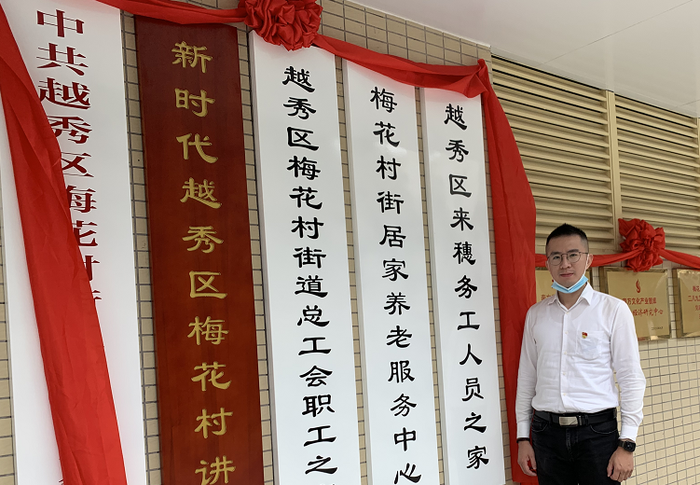 中共越秀区梅花村
新时代越秀区梅花村讲
越秀区梅花村街道总工会职工之
梅花村街居家养老服务中心
越秀区来穗务工人员之家